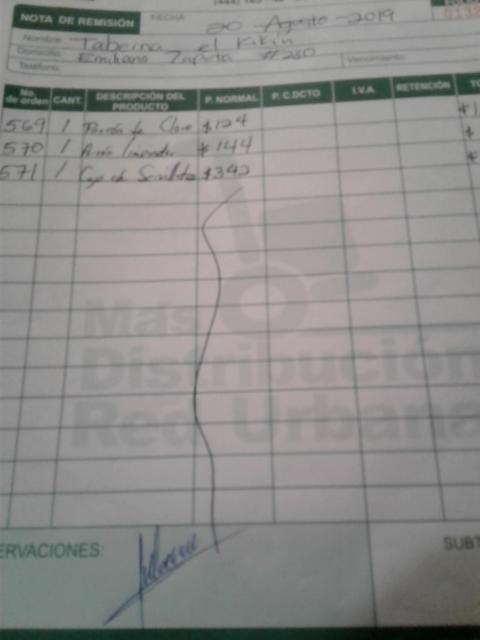 NOTA DE REMISIÓN FECHA 20 - Agosto - 2019 FOLIO
Nombre: Taberna el Kikin
Domicilio: Emiliano Zapata #280
Teléfono: Vencimiento:
No. de orden CANT. DESCRIPCIÓN DEL PRODUCTO P. NORMAL P. C.DCTO I.V.A. RETENCIÓN
569 1 de $124
570 1 $144
571 1 de $392
Más
Distribución
Red Urbana
ERVACIONES: SUBT